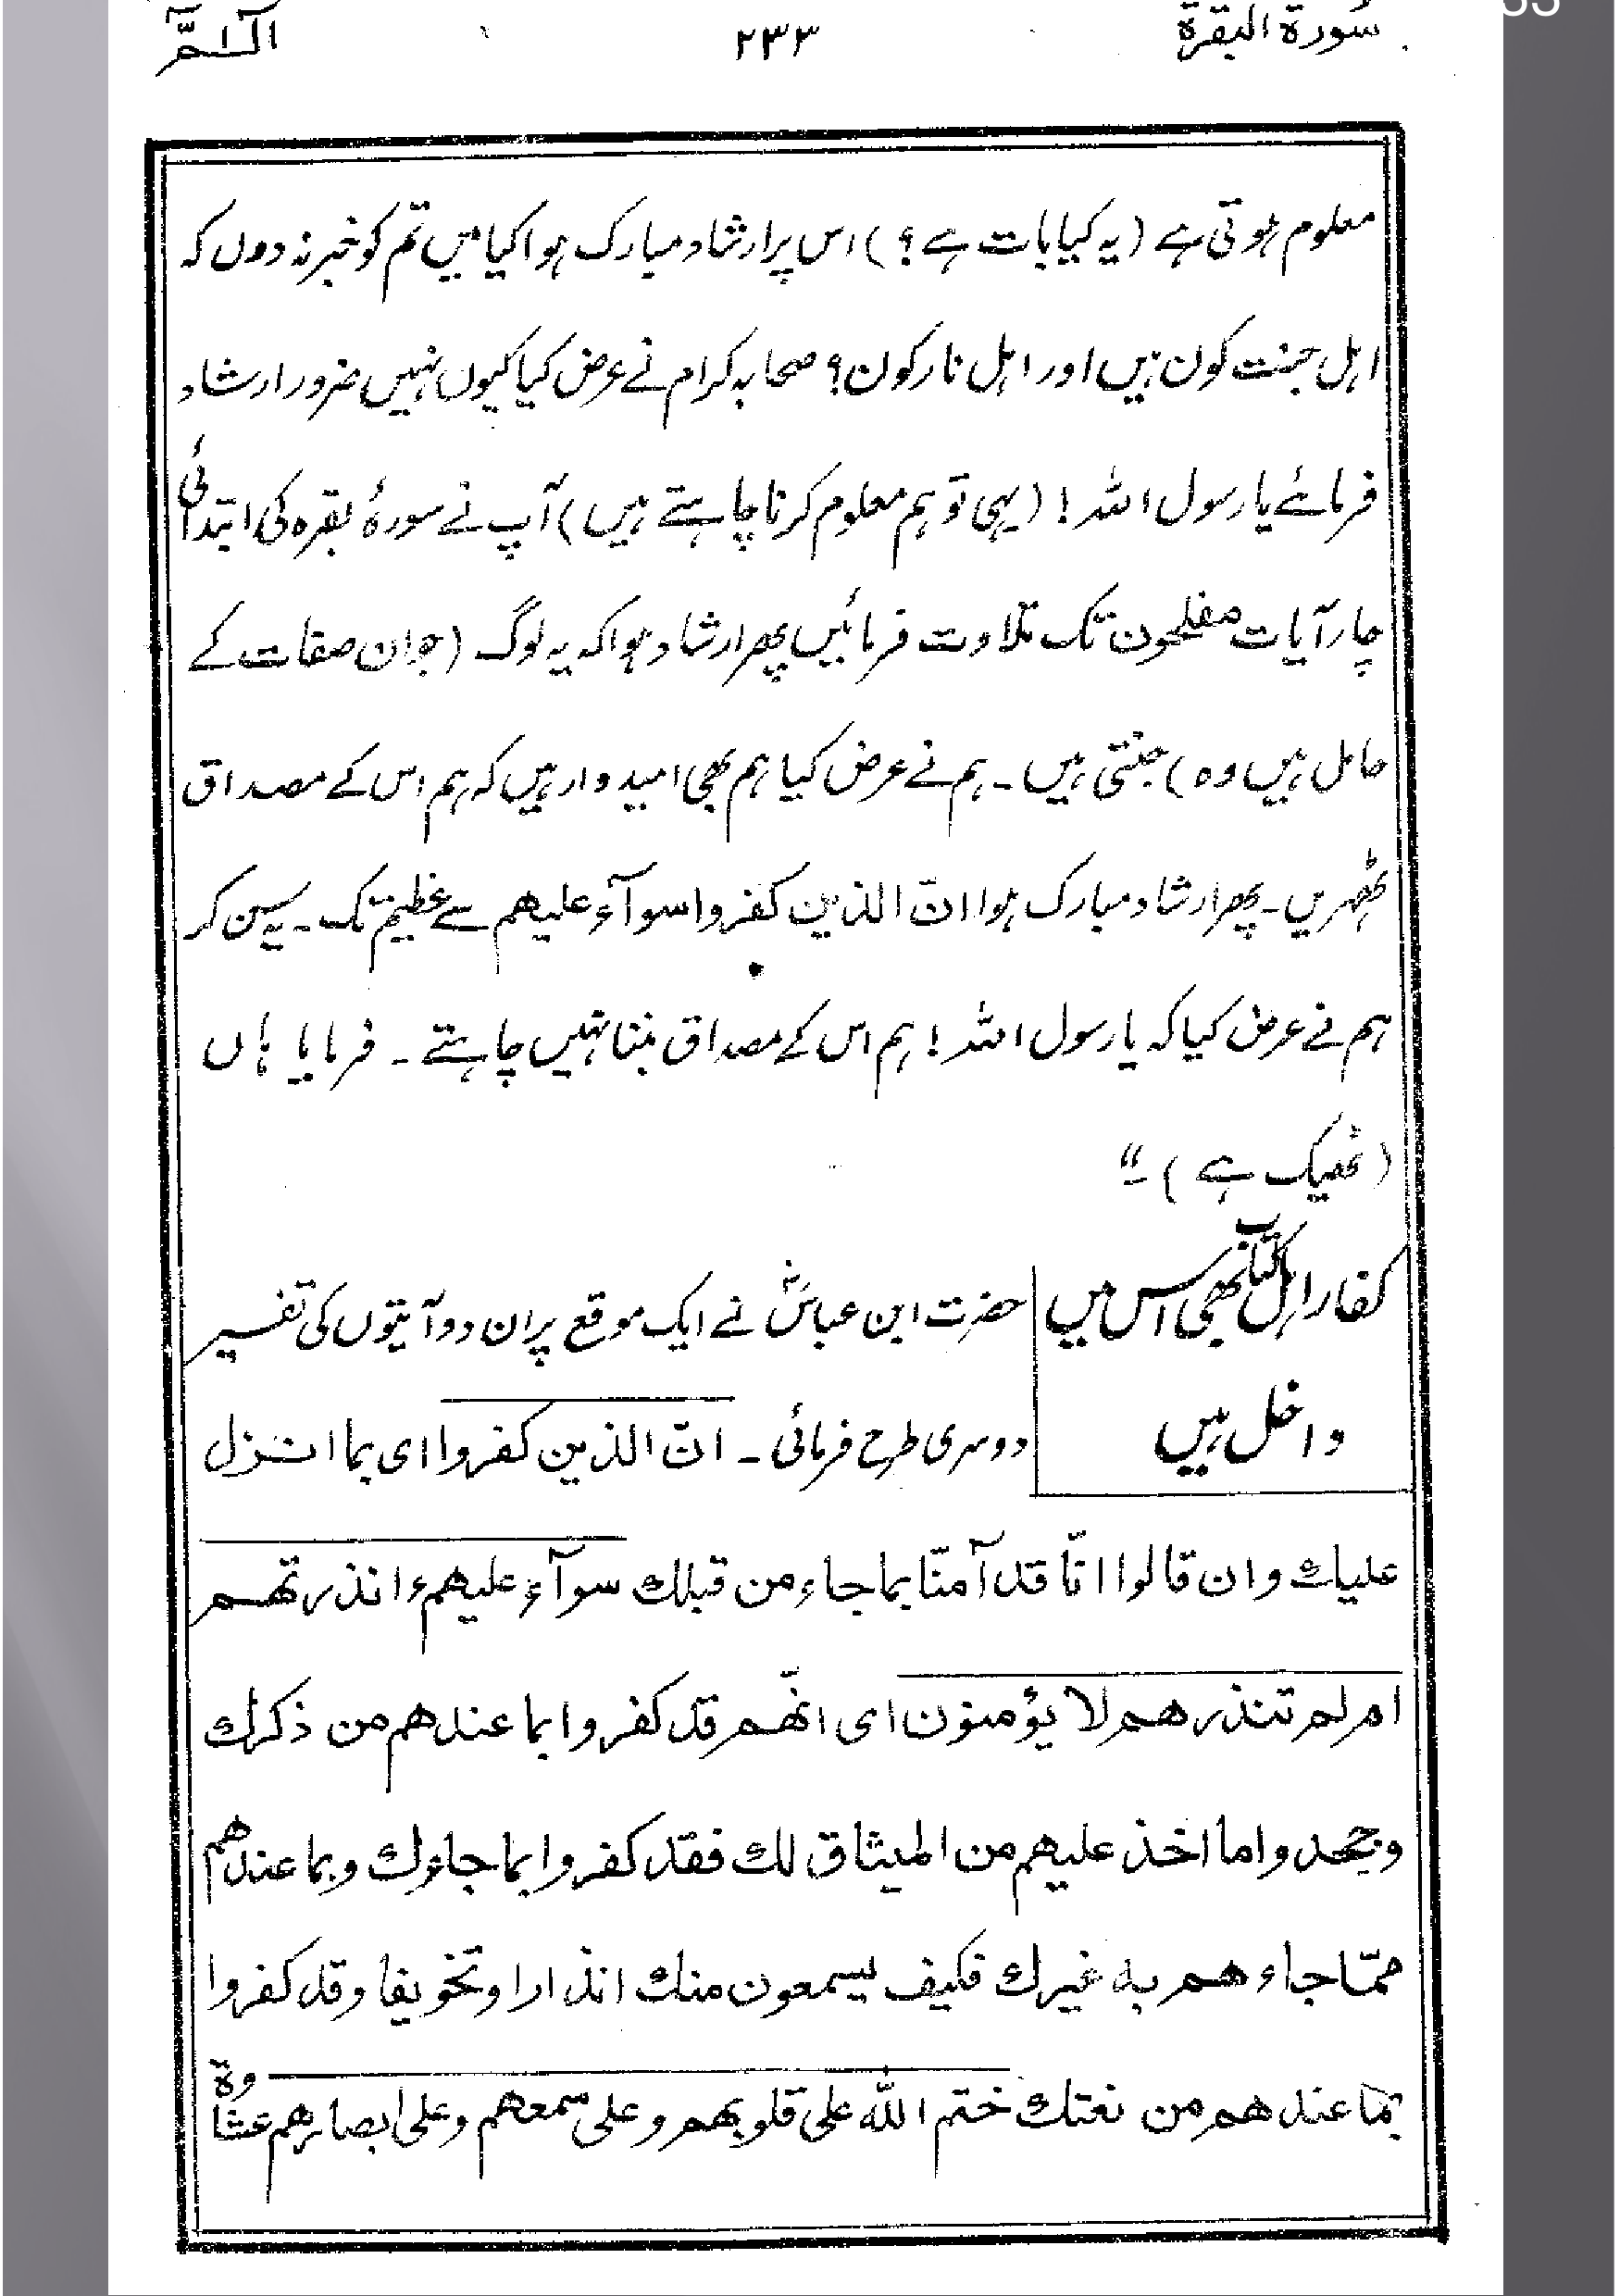 سُورة البقرة ۲۳۳ الٓــمّٓ
معلوم ہوتی ہے (یہ کیا بات ہے؟) اس پر ارشاد مبارک ہوا کیا میں تم کو خبر نہ دوں کہ
اہل جنت کون ہیں اور اہل نار کون؟ صحابہ کرام نے عرض کیا کیوں نہیں ضرور ارشاد
فرمائے یا رسول اللہ! (یہی تو ہم معلوم کرنا چاہتے ہیں) آپ نے سورۂ بقرہ کی ابتدائی
چار آیات مفلحون تک تلاوت فرمائیں پھر ارشاد ہوا کہ یہ لوگ (جو ان صفات کے
حامل ہیں وہ) جنتی ہیں۔ ہم نے عرض کیا ہم بھی امیدوار ہیں کہ ہم اس کے مصداق
ٹھہریں۔ پھر ارشاد مبارک ہوا انّ الذین کفروا سوآء علیھم سے عظیم تک۔ یہ سن کر
ہم نے عرض کیا کہ یا رسول اللہ! ہم اس کے مصداق بننا نہیں چاہتے۔ فرمایا ہاں
(ٹھیک ہے)۔"
کفار اہل کتاب بھی اس میں
داخل ہیں
حضرت ابن عباسؓ نے ایک موقع پر ان دو آیتوں کی تفسیر
دوسری طرح فرمائی۔ انّ الذین کفروا ای بما انزل
علیك وان قالوا انّا قد آمنّا بما جاء من قبلك سوآء علیھم ءانذرتھم
ام لم تنذرھم لا یؤمنون ای انّھم قد کفروا بما عندھم من ذکرك
وجحدوا ما اخذ علیھم من المیثاق لك فقد کفروا بما جاءك وبما عندھم
ممّا جاءھم به غیرك فکیف یسمعون منك انذارا وتخویفا وقد کفروا
بما عندھم من نعتك ختم اللّٰه علی قلوبھم وعلی سمعھم وعلی ابصارھم غشاوۃ